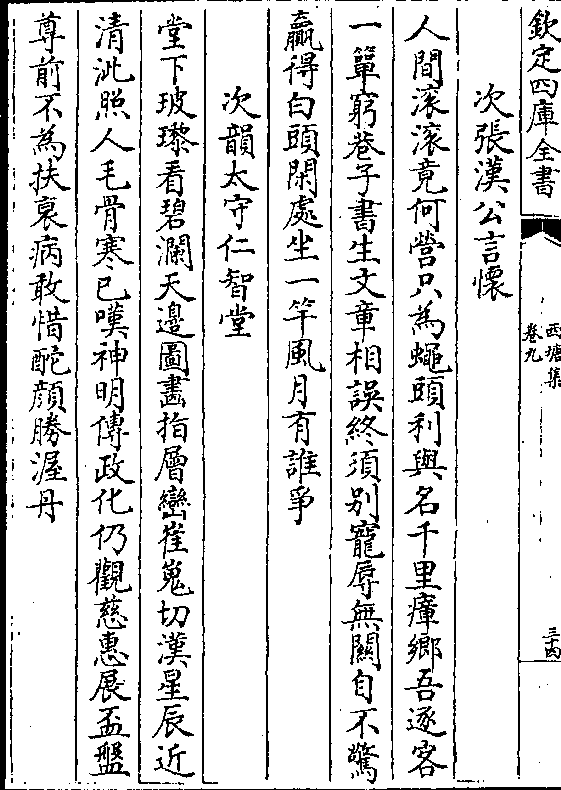 欽定四庫全書
西塘集
卷九
三十四
次張漢公言懷
人間滚滚竟何營只為蠅頭利與名千里瘴鄉吾逐客
一簞窮巷子書生文章相誤終須别寵辱無關自不驚
贏得白頭閑處坐一竿風月有誰爭
次韻太守仁智堂
堂下玻瓈看碧瀾天邊圖畫指層巒崔嵬切漢星辰近
清泚照人毛骨寒已嘆神明傳政化仍觀慈惠展盃盤
尊前不為扶衰病敢惜酡顔勝渥丹